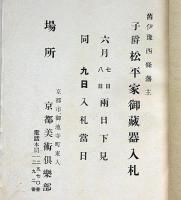 舊伊豫西條藩主
子爵松平家御藏器入札
六月七日八日兩日下見
同九日入札當日
場所
京都市御池寺町東入
京都美術俱樂部
電話本局